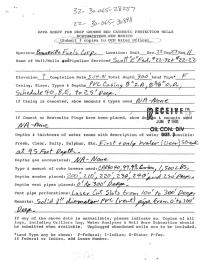 32-30-065-28257
22-30-065-30898
DATA SHEET FOR DEEP GROUND BED CATHODIC PROTECTION WELLS
NORTHWESTERN NEW MEXICO
(Submit 3 copies to OCD Aztec Office)
Operator Location: Unit Sec. Twp Rng
Name of Well/Wells or Pipeline Serviced
Elevation Completion Date Total Depth 300 Land Type* F
Casing, Sizes, Types & Depths PVC Casing 8" I.D.
Schedule 40, to 25' Deep.
If Casing is cemented, show amounts & types used N/A-None
If Cement or Bentonite Plugs have been placed, show depths & amounts used
N/A-None
OIL CON. DIV
Depths & thickness of water zones with description of water when possible:
Fresh, Clear, Salty, Sulphur, Etc. First + only water (Clear)
at 95 Feet Depth.
Depths gas encountered: N/A-None
Type & amount of coke breeze used:
Depths anodes placed: 200', 210', 220', 230', 240'
Depths vent pipes placed: 0' to 300' Deep.
Vent pipe perforations: Laser Cut Slots from 100' to 300' Deep.
Remarks: Solid 1" diameter PVC (vent) pipe from 0 to 100'
Deep.
If any of the above data is unavailable, please indicate so. Copies of all
logs, including Drillers Log, Water Analyses & Well Bore Schematics should
be submitted when available. Unplugged abandoned wells are to be included.
*Land Type may be shown: F-Federal; I-Indian; S-State; P-Fee.
If Federal or Indian, add Lease Number.